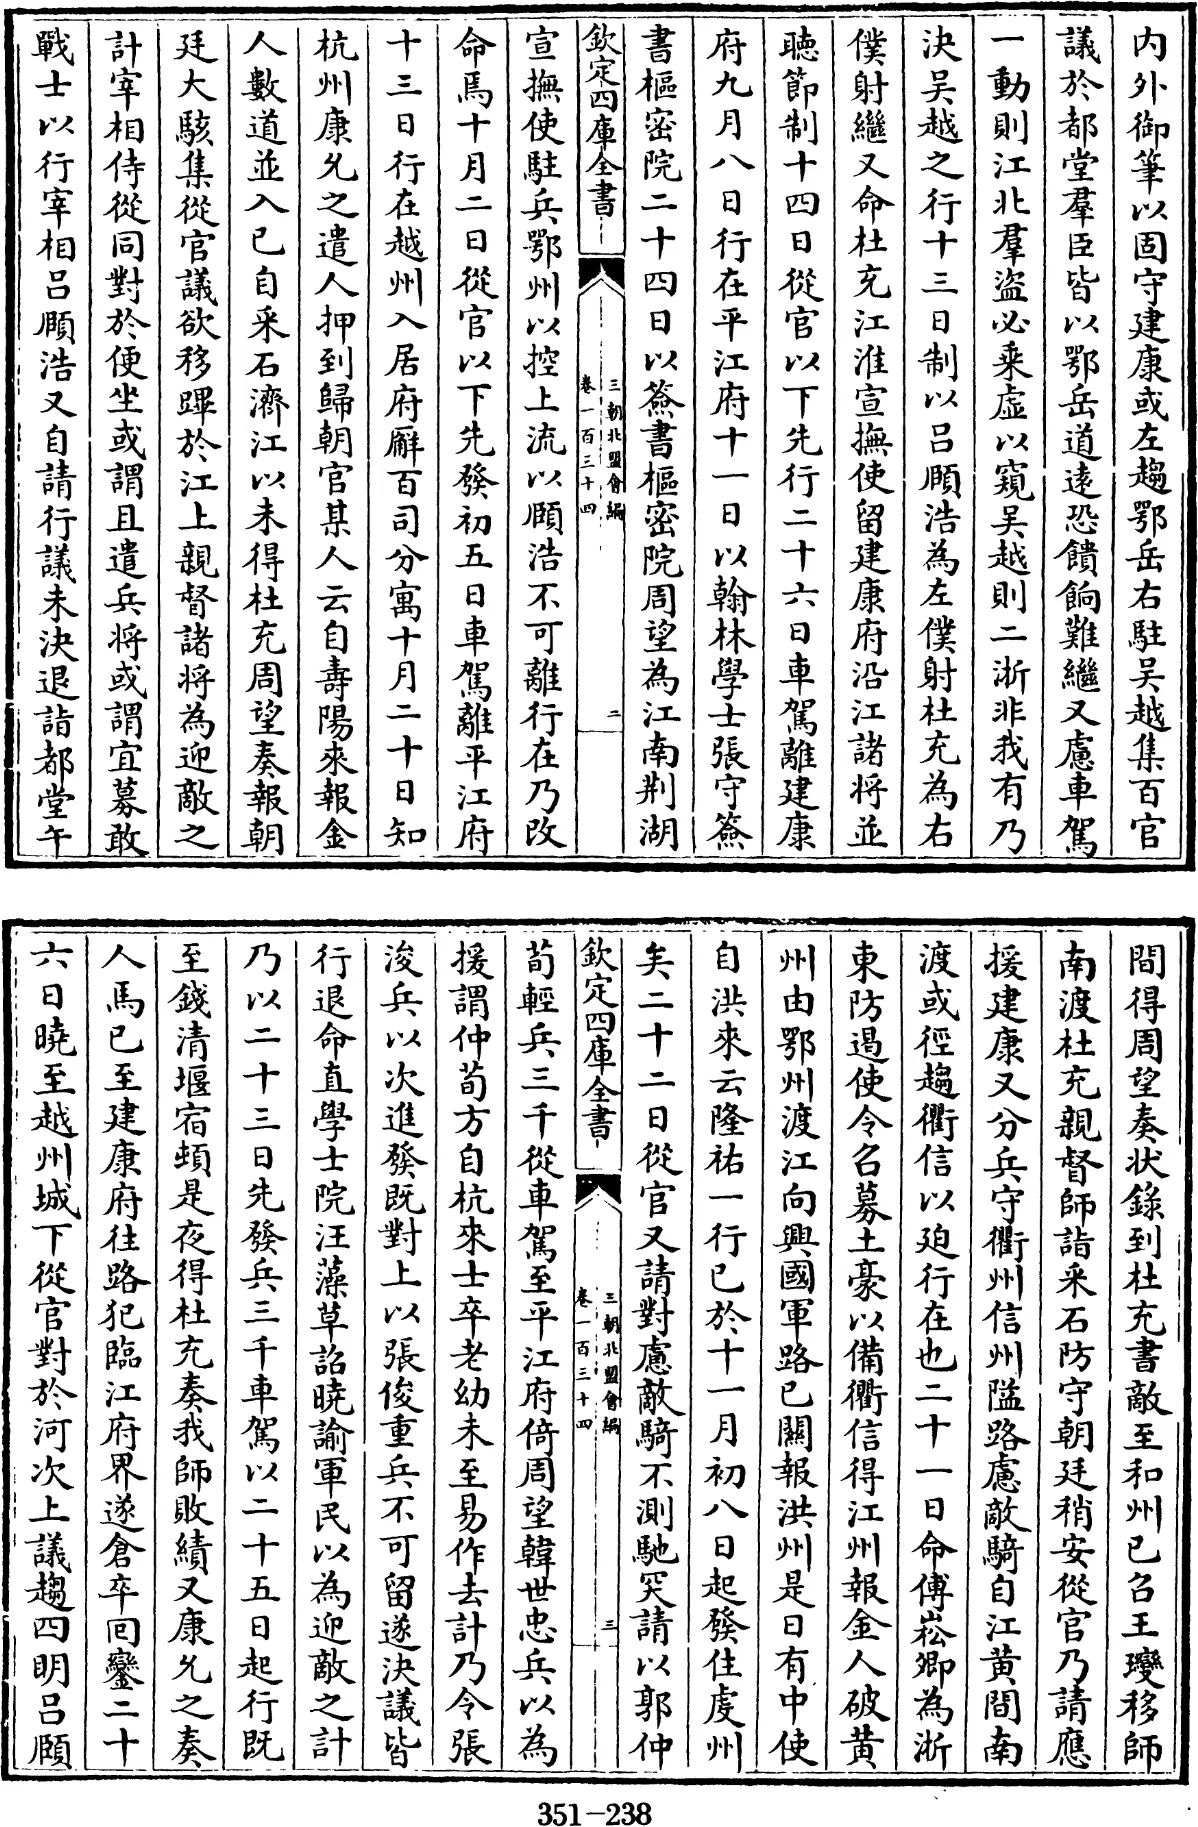 内外御筆以固守建康或左趨鄂岳右駐吳越集百官
議於都堂羣臣皆以鄂岳道遠恐饋餉難繼又慮車駕
一動則江北羣盜必乘虛以窺吳越則二浙非我有乃
決吳越之行十三日制以吕頤浩為左僕射杜充為右
僕射繼又命杜充江淮宣撫使留建康府沿江諸將並
聽節制十四日從官以下先行二十六日車駕離建康
府九月八日行在平江府十一日以翰林學士張守簽
書樞密院二十四日以簽書樞密院周望為江南荆湖
欽定四庫全書
三朝北盟會編
卷一百三十四
二
宣撫使駐兵鄂州以控上流以頤浩不可離行在乃改
命馬十月二日從官以下先發初五日車駕離平江府
十三日行在越州入居府廨百司分寓十月二十日知
杭州康允之遣人押到歸朝官某人云自壽陽來報金
人數道並入已自采石濟江以未得杜充周望奏報朝
廷大駭集從官議欲移蹕於江上親督諸將為迎敵之
計宰相侍從同對於便坐或謂且遣兵將或謂宜募敢
戰士以行宰相吕頤浩又自請行議未決退詣都堂午
間得周望奏狀錄到杜充書敵至和州已召王𤫉移師
南渡杜充親督師詣采石防守朝廷稍安從官乃請應
援建康又分兵守衢州信州隘路慮敵騎自江黃間南
渡或徑趨衢信以廹行在也二十一日命傅崧卿為浙
東防遏使令召募土豪以備衢信得江州報金人破黃
州由鄂州渡江向興國軍路已關報洪州是日有中使
自洪來云隆祐一行已於十一月初八日起發往虔州
矣二十二日從官又請對慮敵騎不測馳突請以郭仲
欽定四庫全書
三朝北盟會編
卷一百三十四
三
荀輕兵三千從車駕至平江府倚周望韓世忠兵以為
援謂仲荀方自杭來士卒老幼未至易作去計乃令張
浚兵以次進發既對上以張俊重兵不可留遂決議皆
行退命直學士院汪藻草詔曉諭軍民以為迎敵之計
乃以二十三日先發兵三千車駕以二十五日起行既
至錢清堰宿頓是夜得杜充奏我師敗績又康允之奏
人馬已至建康府往路犯臨江府界遂倉卒囘鑾二十
六日曉至越州城下從官對於河次上議趨四明吕頤
351-238